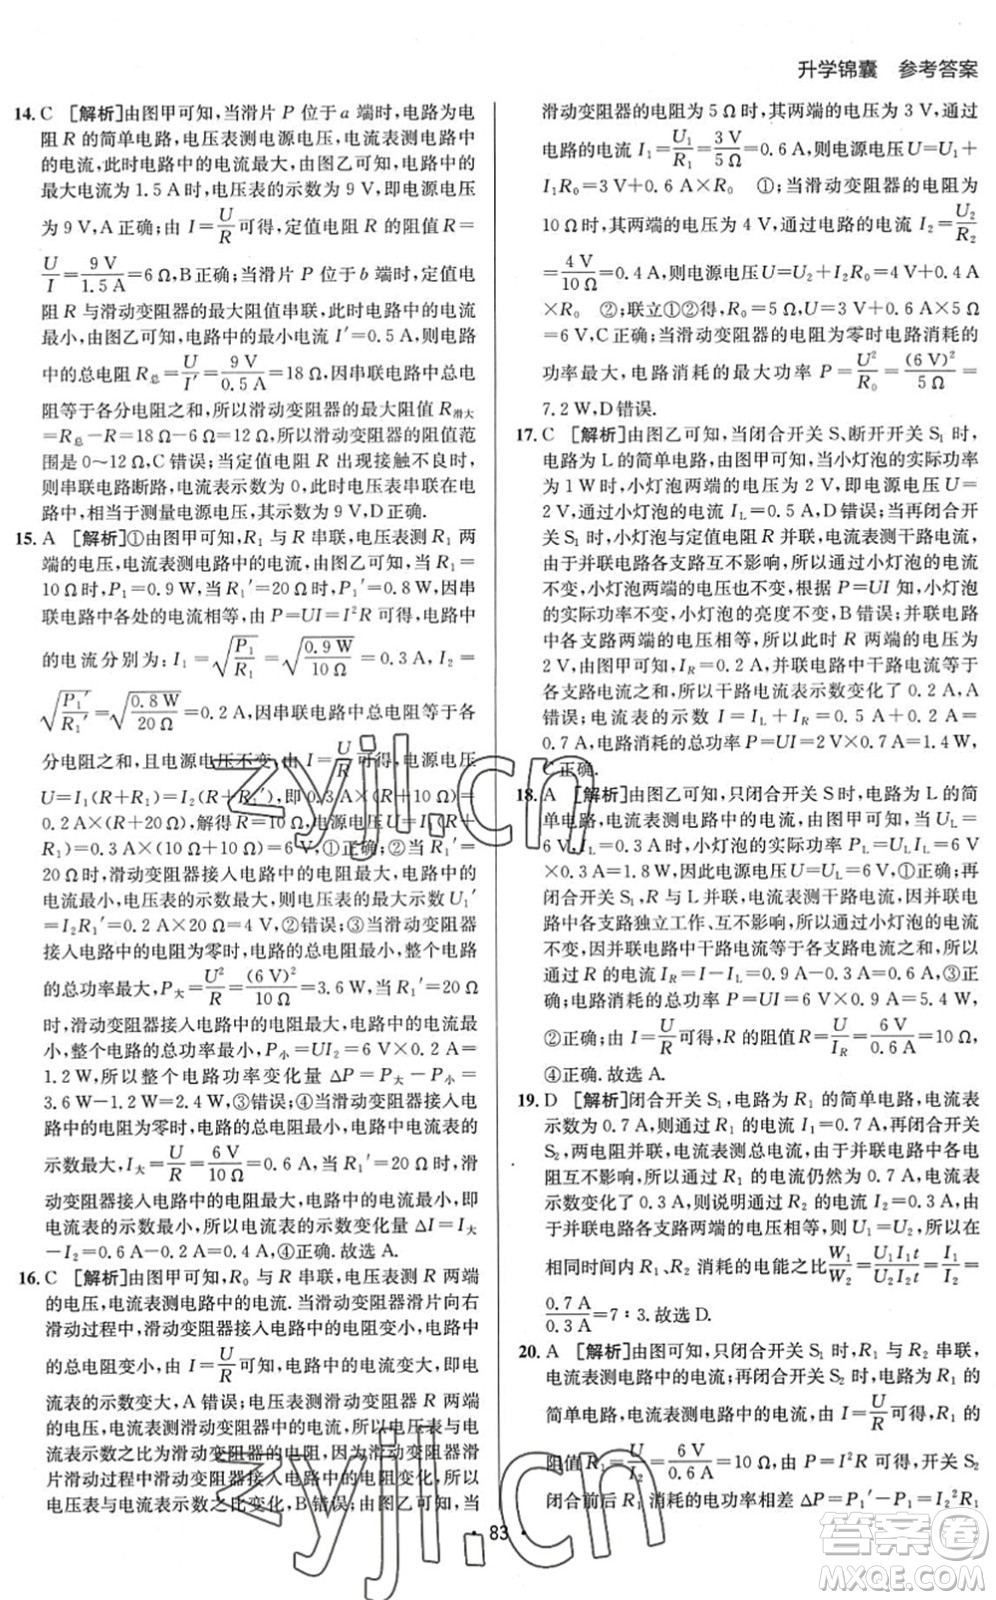 升学锦囊 参考答案
14. C [解析]由图甲可知,当滑片 P 位于 a 端时,电路为电
阻 R 的简单电路,电压表测电源电压,电流表测电路中
的电流,此时电路中的电流最大,由图乙可知,电路中的
最大电流为 1.5 A时,电压表的示数为 9 V,即电源电压
为 9 V,A 正确;由 I=U/R可得,定值电阻 R 的阻值 R=
U/I=9 V/1.5 A=6 Ω,B 正确;当滑片 P 位于 b 端时,定值电
阻 R 与滑动变阻器的最大阻值串联,此时电路中的电流
最小,由图乙可知,电路中的最小电流 I′=0.5 A,则电路
中的总电阻 R总=U/I′=9 V/0.5 A=18 Ω,因串联电路中总电
阻等于各分电阻之和,所以滑动变阻器的最大阻值 R滑大
=R总-R=18 Ω-6 Ω=12 Ω,所以滑动变阻器的阻值范
围是 0～12 Ω,C 错误;当定值电阻 R 出现接触不良时,
则串联电路断路,电流表示数为 0,此时电压表串联在电
路中,相当于测量电源电压,其示数为 9 V,D正确.
15. A [解析]①由图甲可知,R₁ 与 R 串联,电压表测 R₁ 两
端的电压,电流表测电路中的电流,由图乙可知,当 R₁=
10 Ω时,P₁=0.9 W,当 R₁′=20 Ω时,P₁′=0.8 W,因串
联电路中各处的电流相等,由 P=UI=I²R 可得,电路中
的电流分别为:I₁=√(P₁/R₁)=√(0.9 W/10 Ω)=0.3 A,I₂=
√(P₁′/R₁′)=√(0.8 W/20 Ω)=0.2 A,因串联电路中总电阻等于各
分电阻之和,且电源电压不变,由 I=U/R可得,电源电压
U=I₁(R+R₁)=I₂(R+R₁′),即 0.3 A×(R+10 Ω)=
0.2 A×(R+20 Ω),解得 R=10 Ω,电源电压 U=I₁(R+
R₁)=0.3 A×(10 Ω+10 Ω)=6 V,①正确;②当 R₁′=
20 Ω时,滑动变阻器接入电路中的电阻最大,电路中的电
流最小,电压表的示数最大,则电压表的最大示数 U₁′
=I₂R₁′=0.2 A×20 Ω=4 V,②错误;③当滑动变阻器
接入电路中的电阻为零时,电路的总电阻最小,整个电路
的总功率最大,P大=U²/R=(6 V)²/10 Ω=3.6 W,当 R₁′=20 Ω时,
滑动变阻器接入电路中的电阻最大,电路中的电流最
小,整个电路的总功率最小,P小=UI₂=6 V×0.2 A=
1.2 W,所以整个电路功率变化量 ΔP=P大-P小=
3.6 W-1.2 W=2.4 W,③错误;④当滑动变阻器接入电
路中的电阻为零时,电路的总电阻最小,电路中电流表的
示数最大,I大=U/R=6 V/10 Ω=0.6 A,当 R₁′=20 Ω时,滑
动变阻器接入电路中的电阻最大,电路中的电流最小,即
电流表的示数最小,所以电流表的示数变化量 ΔI=I大
-I₂=0.6 A-0.2 A=0.4 A,④正确.故选 A.
16. C [解析]由图甲可知,R₀ 与 R 串联,电压表测 R 两端
的电压,电流表测电路中的电流.当滑动变阻器滑片向右
滑动过程中,滑动变阻器接入电路中的电阻变小,电路中
的总电阻变小,由 I=U/R可知,电路中的电流变大,即电
流表的示数变大,A 错误;电压表测滑动变阻器 R 两端
的电压,电流表测滑动变阻器中的电流,所以电压表与电
流表示数之比为滑动变阻器的电阻,因为滑动变阻器滑
片滑动过程中滑动变阻器接入电路中的电阻变小,所以
电压表与电流表示数之比变化,B错误;由图乙可知,当
滑动变阻器的电阻为 5 Ω时,其两端的电压为 3 V,通过
电路的电流 I₁=U₁/R₁=3 V/5 Ω=0.6 A,则电源电压 U=U₁+
I₁R₀=3 V+0.6 A×R₀ ①;当滑动变阻器的电阻为
10 Ω时,其两端的电压为 4 V,通过电路的电流 I₂=U₂/R₂
=4 V/10 Ω=0.4 A,则电源电压 U=U₂+I₂R₀=4 V+0.4 A
×R₀ ②;联立①②得,R₀=5 Ω,U=3 V+0.6 A×5 Ω
=6 V,C正确;当滑动变阻器的电阻为零时电路消耗的
功率最大,电路消耗的最大功率 P=U²/R₀=(6 V)²/5 Ω=
7.2 W,D 错误.
17. C [解析]由图乙可知,当闭合开关 S,断开开关 S₁ 时,
电路为 L 的简单电路,由图甲可知,当小灯泡的实际功率
为 1 W 时,小灯泡两端的电压为 2 V,即电源电压为 2 V,
此时通过小灯泡的电流 I_L=0.5 A,D 错误;当再闭合开
关 S₁ 时,小灯泡与定值电阻 R 并联,电流表测干路电流,
由于并联电路中各支路互不影响,所以通过小灯泡的电流
不变,小灯泡两端的电压也不变,根据 P=UI 知,小灯泡
的实际功率不变,小灯泡的亮度不变,B 错误;并联电路
中各支路两端的电压相等,所以此时 R 两端的电压为
2 V,由图甲可知,I_R=0.2 A,并联电路中干路电流等于各
支路电流之和,所以干路电流表示数变化了 0.2 A,A
错误;电流表的示数 I=I_L+I_R=0.5 A+0.2 A=
0.7 A,电路消耗的总功率 P=UI=2 V×0.7 A=1.4 W,
C 正确.
18. A [解析]由图乙可知,只闭合开关 S 时,电路为 L 的简
单电路,电流表测电路中的电流,由图甲可知,当 U_L=
6 V,I_L=0.3 A时,小灯泡的实际功率 P_L=U_LI_L=6 V
×0.3 A=1.8 W,因此电源电压 U=U_L=6 V,①正确;再
闭合开关 S₁,R 与 L 并联,电流表测干路电流,因并联电
路中各支路独立工作、互不影响,所以通过小灯泡的电流
不变,因并联电路中干路电流等于各支路电流之和,所以
通过 R 的电流 I_R=I-I_L=0.9 A-0.3 A=0.6 A,③正
确;电路消耗的总功率 P=UI=6 V×0.9 A=5.4 W,
②正确;由 I=U/R可得,R 的阻值R=U/I_R=6 V/0.6 A=10 Ω,
④正确.故选 A.
19. D [解析]闭合开关 S₁,电路为 R₁ 的简单电路,电流表示
数为 0.7 A,则通过 R₁ 的电流 I₁=0.7 A,再闭合开关
S₂,两电阻并联,电流表测总电流,由于并联电路中各支
路互不影响,所以通过 R₁ 的电流仍然为 0.7 A,电流表
示数变化了 0.3 A,则说明通过 R₂ 的电流 I₂=0.3 A,由
于并联电路各支路两端的电压相等,则 U₁=U₂,所以在
相同时间内 R₁、R₂ 消耗的电能之比W₁/W₂=U₁I₁t/U₂I₂t=I₁/I₂=
0.7 A/0.3 A=7∶3.故选 D.
20. A [解析]由图可知,只闭合开关 S₁ 时,R₁ 与 R₂ 串联,
电流表测电路中的电流;再闭合开关 S₂ 时,电路为 R₁ 的
简单电路,电流表测电路中的电流,由 I=U/R可得,R₁ 的
阻值 R₁=U/I₂=6 V/0.6 A=10 Ω,由 P=I²R 可得,开关 S₂
闭合前后 R₁ 消耗的电功率相差 ΔP=P₁′-P₁=I₂²R₁
· 83 ·
zyjl.cn
zyjl.cn
答案圈
MXQE.COM